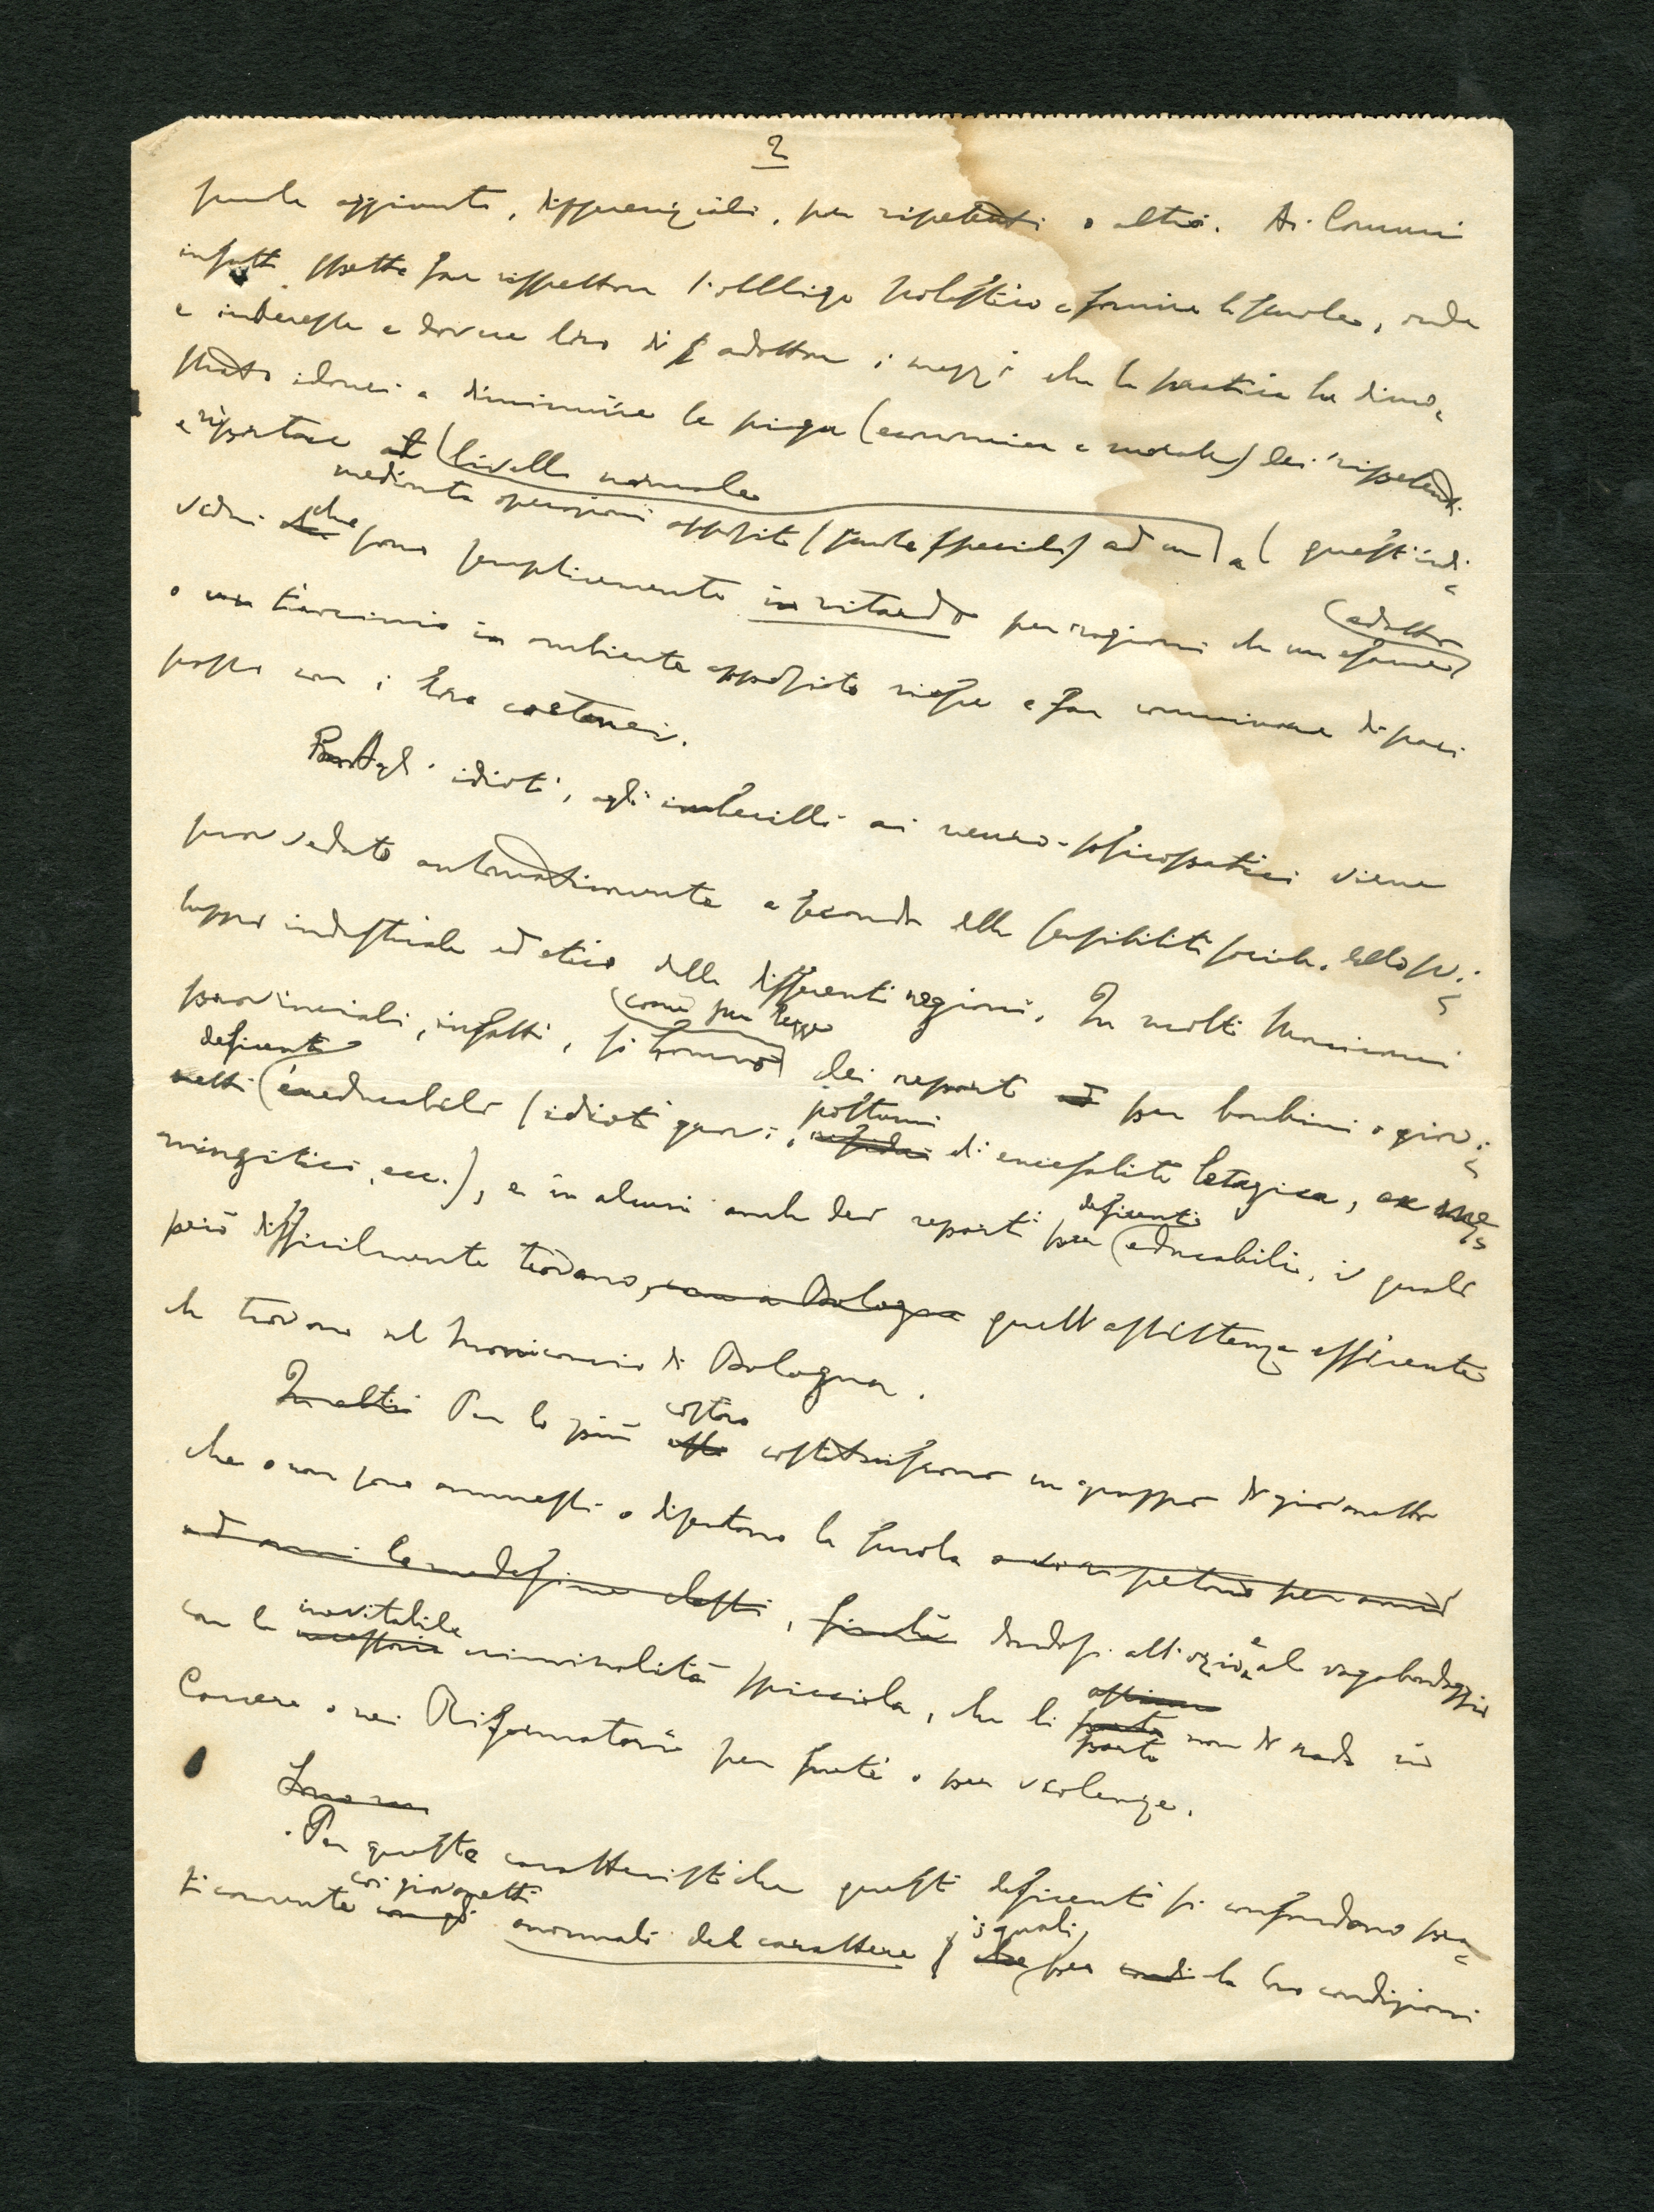 2
scuole aggiunte, differenziali, per ripetenti o altro. Ai Comuni
infatti spetta far rispettare l'obbligo scolastico e fornire le scuole, onde
è interesse e dovere loro di adottare i mezzi che la pratica ha dimo=
strato idonei a diminuire la piaga (economica e morale) dei ripetenti
e riportare al livello normale
mediante operazioni apposite (scuole speciali) ad un a questi indi=
vidui che sono semplicemente in ritardo per ragioni che un esame adatto
o un tirocinio in ambiente apposito riesce a far camminare di pari
passo con i loro coetanei.
Agli idioti, agli imbecilli ai neuro-psicopatici viene
provveduto automaticamente a seconda della sensibilità sociale, dello svi=
luppo industriale ed etico delle differenti regioni. In molti Manicomi
provinciali, infatti, si trovano come per legge dei reparti ad per bambini o giovi=
netti deficienti ineducabili (idioti gravi, postumi di encefalite letargica, ex me=
ningitici, ecc.), e in alcuni anche dei reparti per deficienti educabili, i quali
però difficilmente trovano, come a Bologna quell'assistenza efficiente
che trovano nel Manicomio di Bologna.
In altri Per lo più costoro costituiscono un gruppo di giovanetti
che o non sono ammessi o disertano la scuola o vi ripetono per anni
ed anni le medesime classi, finchè dandosi all'ozio e al vagabondaggio
con la necessaria inevitabile criminalità spicciola, che li porta non di rado in
Carcere o nei Riformatori per furti o per violenze.
Sono un
Per queste caratteristiche questi deficienti si confondono pra=
ticamente con gli coi giovanetti anormali del carattere che i quali per la loro condizioni